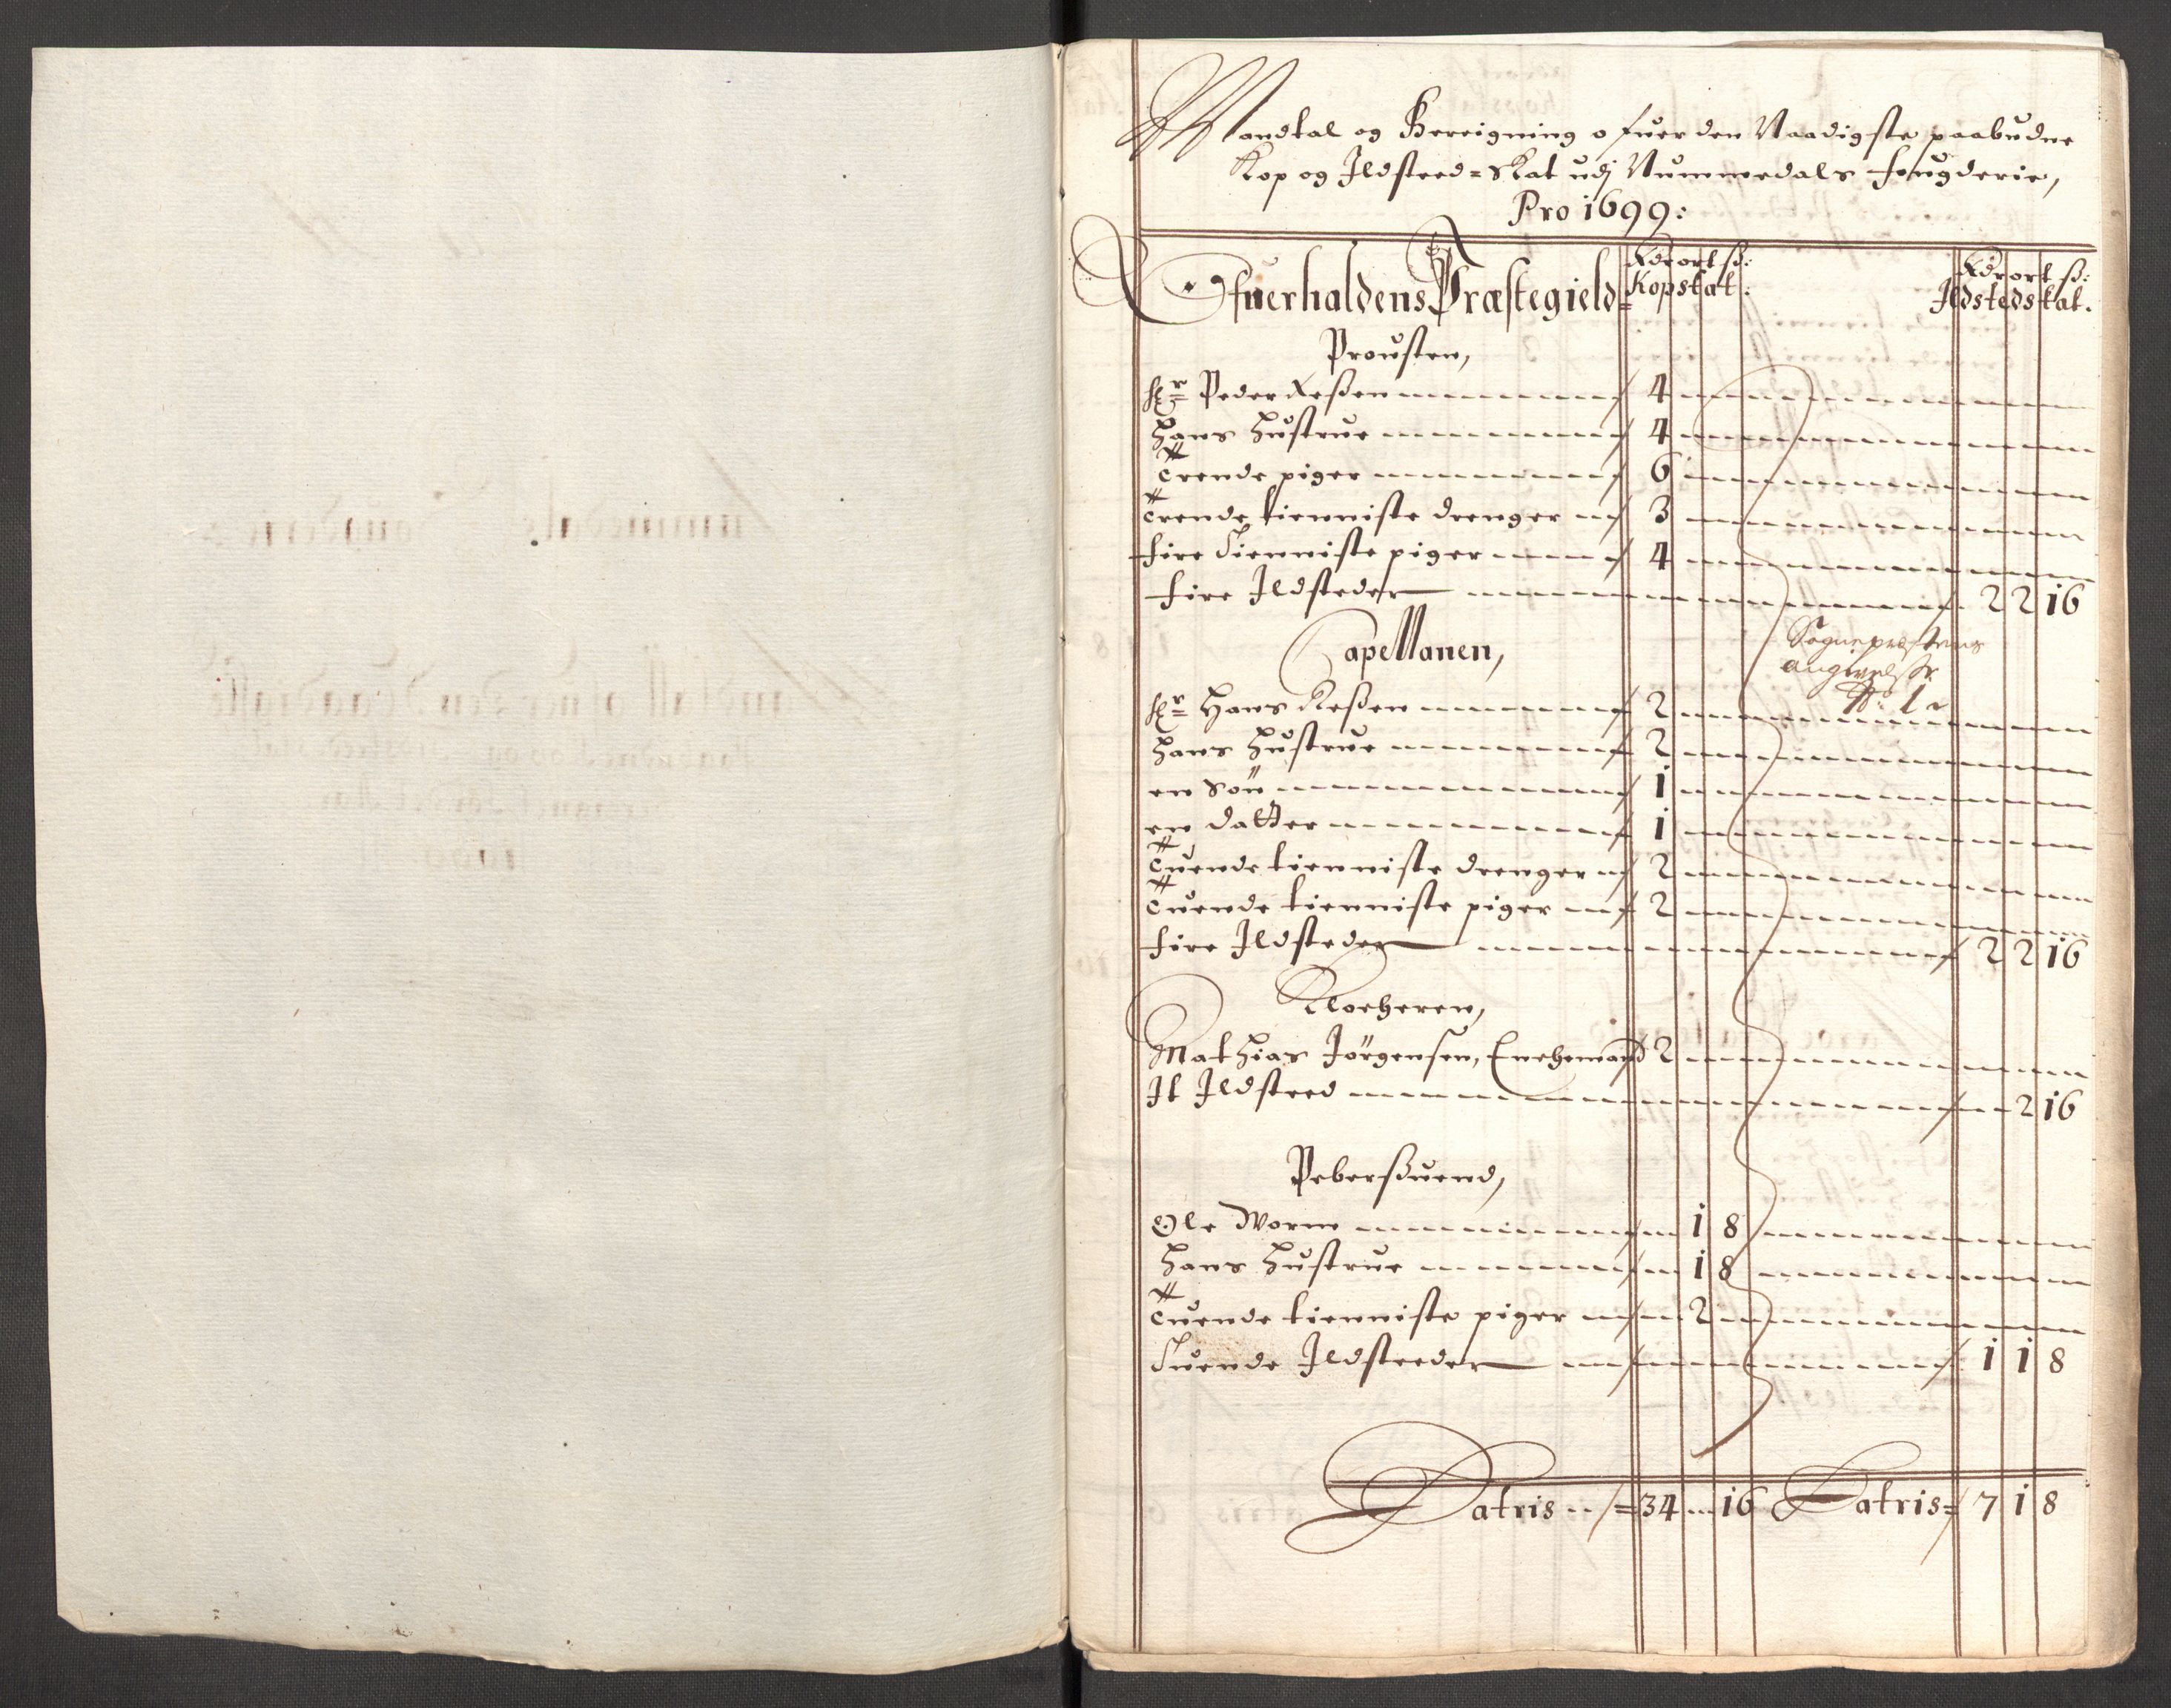 Mandtal og Bereigning ofuer den Naadigste paabudne
Kop og Ildsteed=Skat udj Nummedals fougderie,
Pro 1699:
Ofuerhaldens Præstegield=
Rdr ort ß:
Kopskat:
Rdr ort ß:
Ildstedskat.
Prousten,
Hr Peder 4
hans hustrue 4
Trende piger 6
Trende tienniste drenger 3
fire Tienniste piger 4
fire Ildsteder 2 2 16
Capellanen,
Sognepræstens
angivelße
No 1
Hr Hans 2
hans hustrue 2
en Søn 1
en datter 1
Tuende tienniste drenger 2
Tuende tienniste piger 2
fire Ildsteder 2 2 16
Klocheren,
Mathias Jørgensen, Enchemand 2
It Ildsteed 2 16
Pebersuend,
Ole Worm 1 8
hans hustrue 1 8
Tuende tienniste piger 2
Tuende Ildsteeder 1 1 8
Latris 34 16 Latris 7 1 8